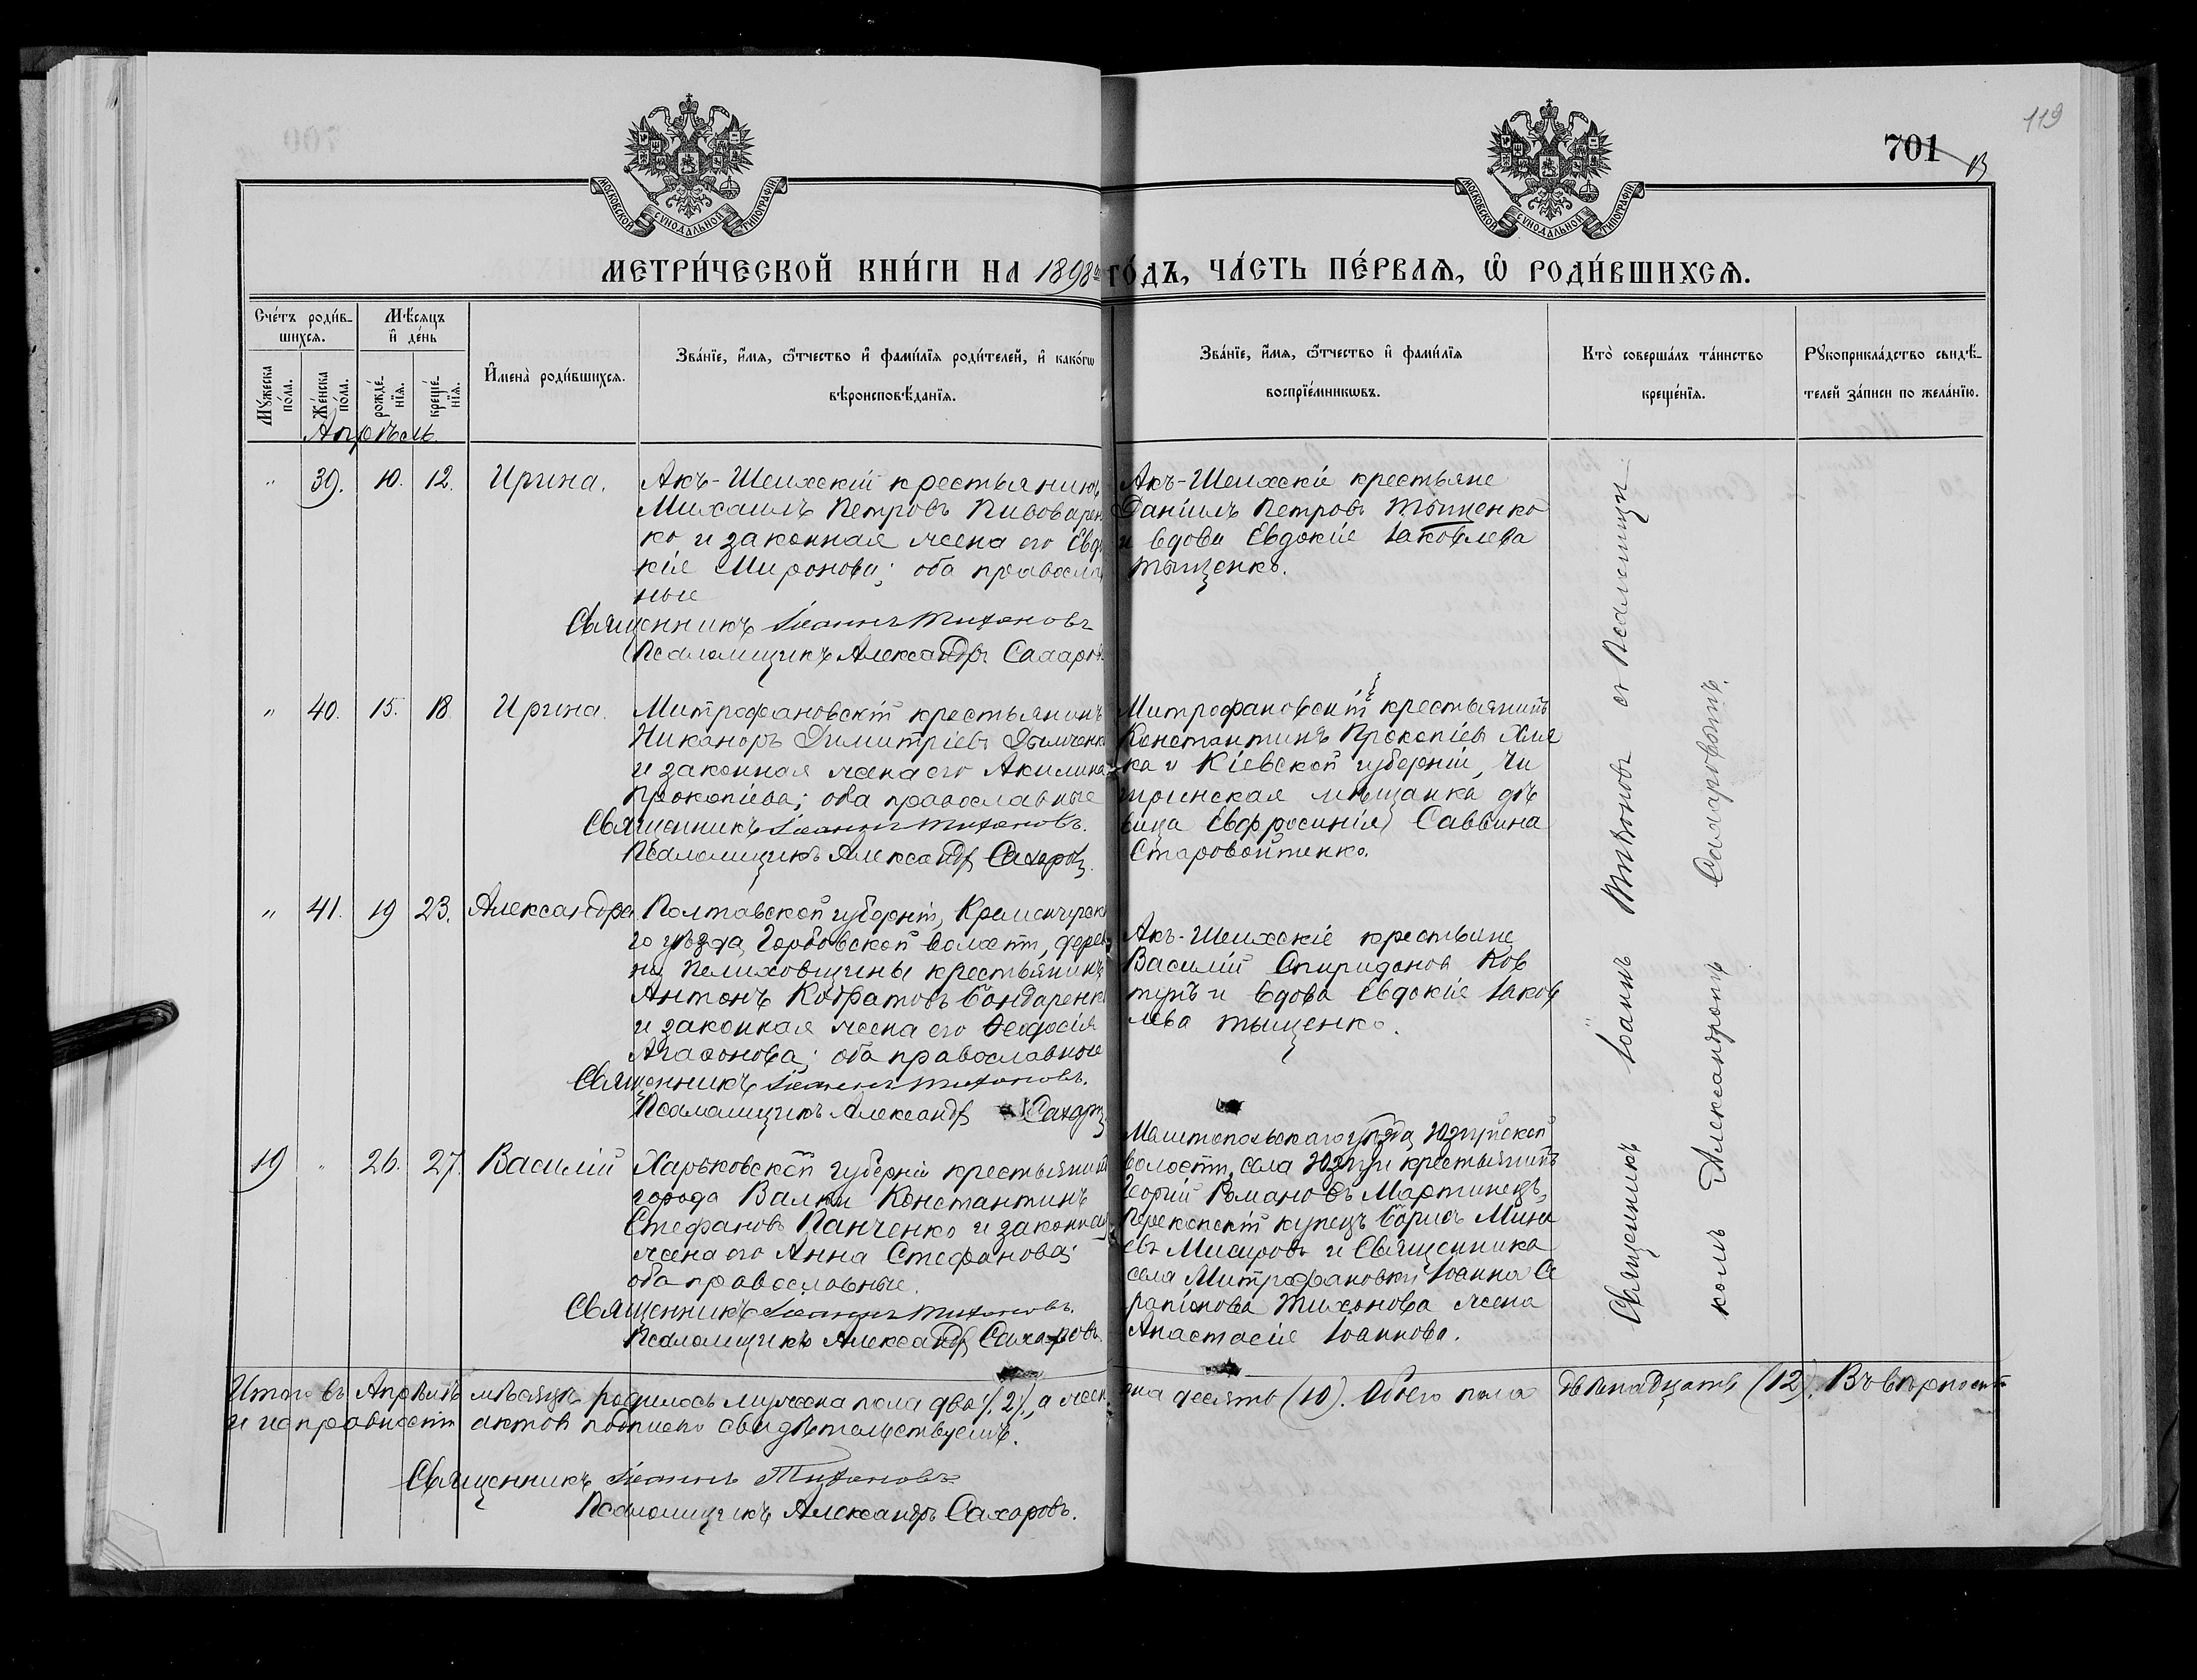 119
701
МОСКОВСКОЙ СѴНОДАЛЬНОЙ ТИПОГРАФІИ
МОСКОВСКОЙ СѴНОДАЛЬНОЙ ТИПОГРАФІИ
МЕТРИ́ЧЕСКОЙ КНИ́ГИ НА 1898й ГО́ДЪ, ЧА́СТЬ ПЕ́РВАѦ, Ѡ РОДИ́ВШИХСѦ.
Сче́тъ роди́в-
шихся.
Мѣ́сяцъ
и҆ де́нь
Мꙋ́жеска
по́ла.
Же́нска
по́ла.
рожде́-
нїя.
креще́-
нїя.
И҆мена̀ роди́вшихся.
Зва́нїе, и҆́мя, ѻ҆́тчество и҆ фами́лїя роди́телей, и҆ како́гѡ
вѣроисповѣ́данїя.
Зва́нїе, и҆́мя, ѻ҆́тчество и҆ фами́лїя
воспрїе́мникѡвъ.
Кто̀ соверша́лъ та́инство
креще́нїя.
Рꙋкоприкла́дство свидѣ́-
телей за́писи по жела́нїю.
Апрѣль.
" 39. 10. 12. Ирина.
Акъ-Шеихскій крестьянинъ
Михаилъ Петровъ Пивоварен
ко и законная жена его Евдо
кія Миронова; оба православ
ные
Священникъ Іоаннъ Тихоновъ
Псаломщикъ Александръ Сахаровъ
Акъ-Шеихскіе крестьяне
Даніилъ Петровъ Тыщенко
и вдова Евдокія Іаковлева
Тыщенко.
" 40. 15. 18. Ирина.
Митрофановскій крестьянинъ
Никаноръ Димитріевъ
и законная жена его Акилина
Прокопіева; оба православные
Священникъ Іоаннъ Тихоновъ.
Псаломщикъ Александръ Сахаровъ.
Митрофановскій крестьянинъ
Константинъ Прокопіевъ
ка и Кіевской губерніи, Чи
гиринская мѣщанка дѣ
вица Евфросинія Саввина
Старовойтенко.
" 41. 19 23. Александра
Полтавской губерніи, Кременчугска
го уѣзда, Горбовской волости, дерев
ни Пелиховщины крестьянинъ
Антонъ Кодратовъ Бондаренко
и законная жена его Ѳеодосія
Агаѳонова; оба православные
Священникъ Іоаннъ Тихоновъ.
Псаломщикъ Александръ Сахаровъ
Акъ-Шеихскіе крестьяне
Василій Спиридоновъ Ков
тунъ и вдова Евдокія Іаков
лева Тыщенко.
19 " 26. 27. Василій
Харьковской губерніи крестьянинъ
города Валки Константинъ
Стефановъ Панченко и законная
жена его Анна Стефанова;
оба православные.
Священникъ Іоаннъ Тихоновъ.
Псаломщикъ Александръ Сахаровъ.
уѣзда,
волости, села крестьянинъ
Георгій Романовъ Мартинецъ,
Перекопскій купецъ Борисъ Мина
евъ и Священника
села Митрофановки Іоанна Се
рапіонова Тихонова жена
Анастасія Іоаннова.
Священникъ Іоаннъ Тихоновъ съ Псаломщи
комъ Александромъ Сахаровымъ.
Итого въ Апрѣлѣ мѣсяцѣ родилось мужеска пола два (2), а жен ска десять (10). Обоего пола двѣнадцать (12). Въ вѣрности
и исправности актовъ подписью свидѣтельствуемъ.
Священникъ Іоаннъ Тихоновъ
Псаломщикъ Александръ Сахаровъ.